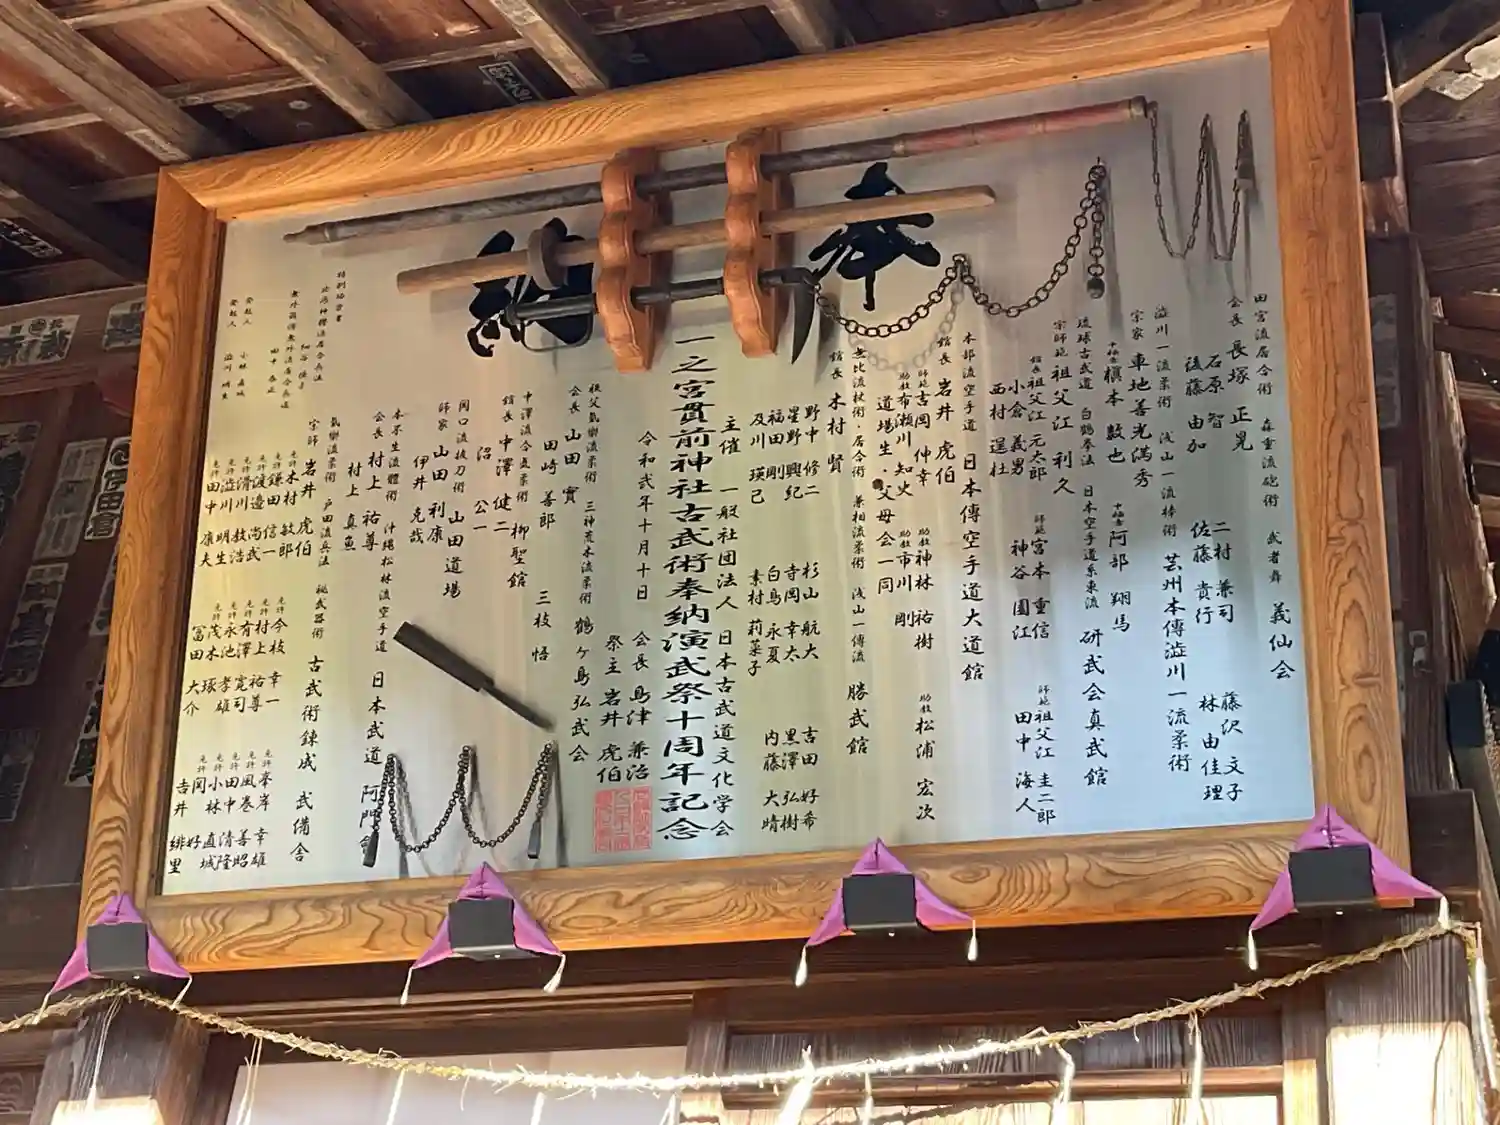 奉納
田宮流居合術 森重流砲術 武者舞 義仙会
会長 長塚 正晃
石原 智
後藤 由加
二村 兼司
佐藤 貴行
藤沢 文子
林 由佳理
澁川一流柔術 浅山一流棒術 芸州本傳澁川一流柔術
宗家 車地善光満秀
槇本 数也
阿部 翔馬
琉球古武道 白鶴拳法 日本空手道系東流 研武会真武館
宗師範 祖父江 利久
館長 祖父江 元太郎
小倉 義男
西村 運杜
師範 宮本 重信
神谷 園江
師範 祖父江 圭二郎
田中 海人
本部流空手道 日本傳空手道大道館
館長 岩井 虎伯
師範 吉岡 伸幸
助教 布瀬川 知史
道場生・父母会一同
助教 神林 祐樹
助教 市川 剛
助教 松浦 宏次
無比流杖術・居合術 兼相流柔術 浅山一傳流 勝武館
館長 木村 賢
野中 修二
星野 興紀
福田 剛
及川 瑛己
杉山 航大
寺岡 幸太
白鳥 永夏
素村 莉菜子
吉田 好希
黒澤 弘樹
内藤 大晴
主催 一般社団法人 日本古武道文化学会
一之宮貫前神社古武術奉納演武祭十周年記念
令和弐年十月十日
会長 島津 兼治
祭主 岩井 虎伯
秩父氣樂流柔術 三神荒木流柔術 鶴ヶ島弘武会
会長 山田 實
田崎 善郎
三枝 悟
中澤流合氣柔術 柳聖館
館長 中澤 健二
沼 公一
関口流抜刀術 山田道場
師家 山田 利康
伊井 克哉
本不生流體術 沖縄松林流空手道 日本武道 阿門会
会長 村上 祐尊
村上 真魚
氣樂流柔術 戸田流兵法 秘武器術 古武術錬成 武備舎
宗師 岩井 虎伯
免許 木村 敏郎
免許 鎌田 信一
免許 渡邉 尚武
免許 滑川 敦浩
免許 澁川 明生
免許 田中 康夫
免許 今枝 幸一
免許 村上 祐尊
免許 有澤 寛司
免許 永池 孝雄
免許 茂木 琢
冨田 大介
免許 峯岸 幸雄
免許 風巻 善昭
免許 田中 清隆
免許 小林 直城
免許 関 好
吉井 緋里
特別協賛者
発起人 小林 直城
発起人 澁川 明生